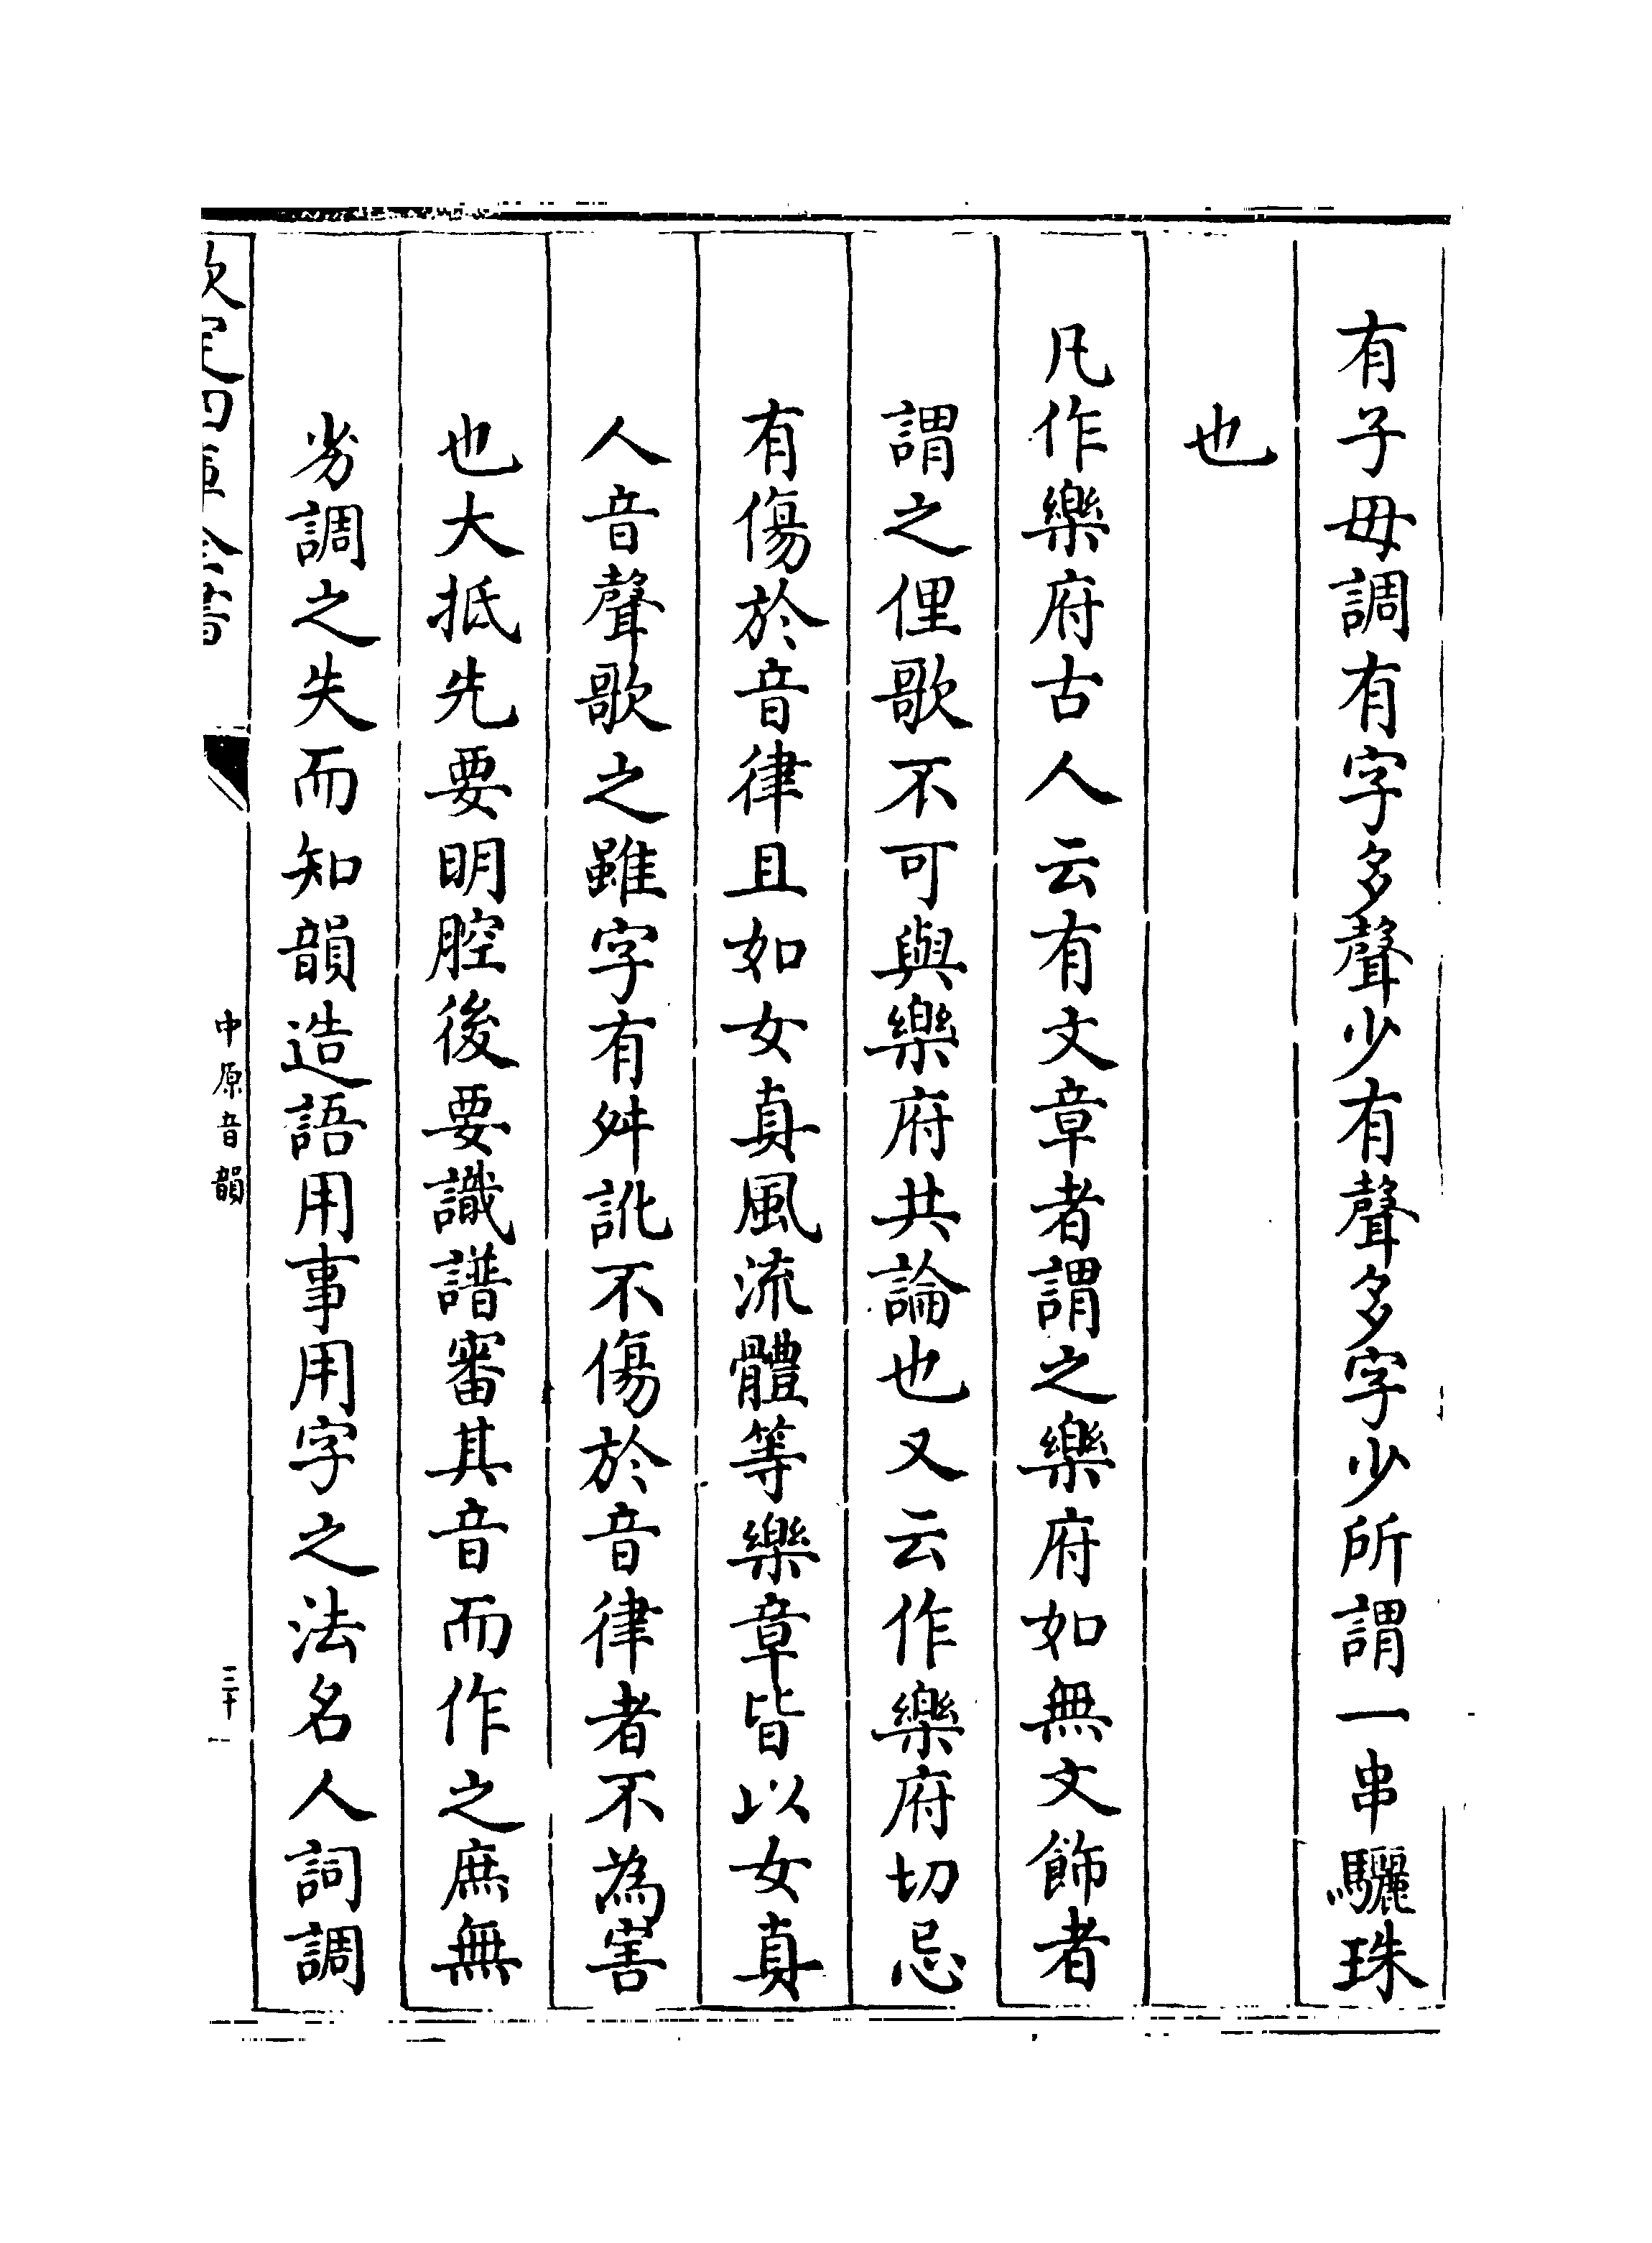 有子母調有字多聲少有聲多字少所謂一串驪珠
也
凡作樂府古人云有文章者謂之樂府如無文飾者
謂之俚歌不可與樂府共論也又云作樂府切忌
有傷於音律且如女真風流體等樂章皆以女真
人音聲歌之雖字有舛訛不傷於音律者不為害
也大抵先要明腔後要識譜審其音而作之庶無
劣調之失而知韻造語用事用字之法名人詞調
欽定四庫全書
中原音韻
三十一